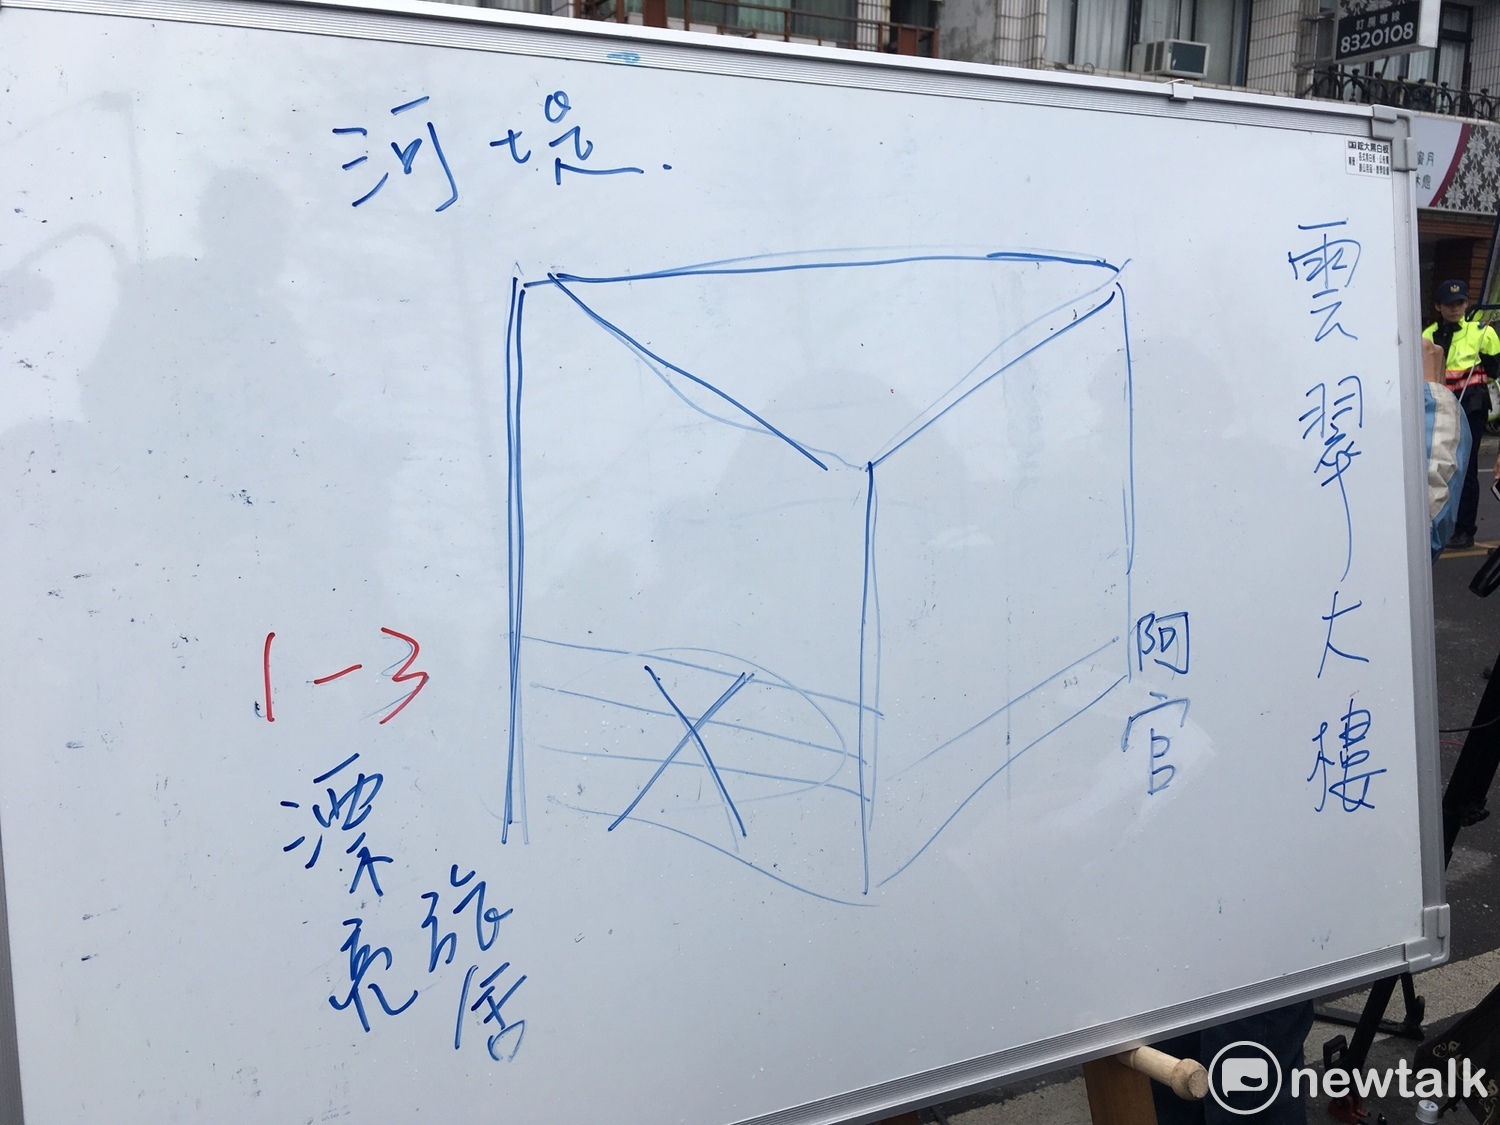 訂房專線
8320108
河堤.
蜜月
休憩
雲翠大樓
阿官
1-3
漂亮
旅居
newtalk